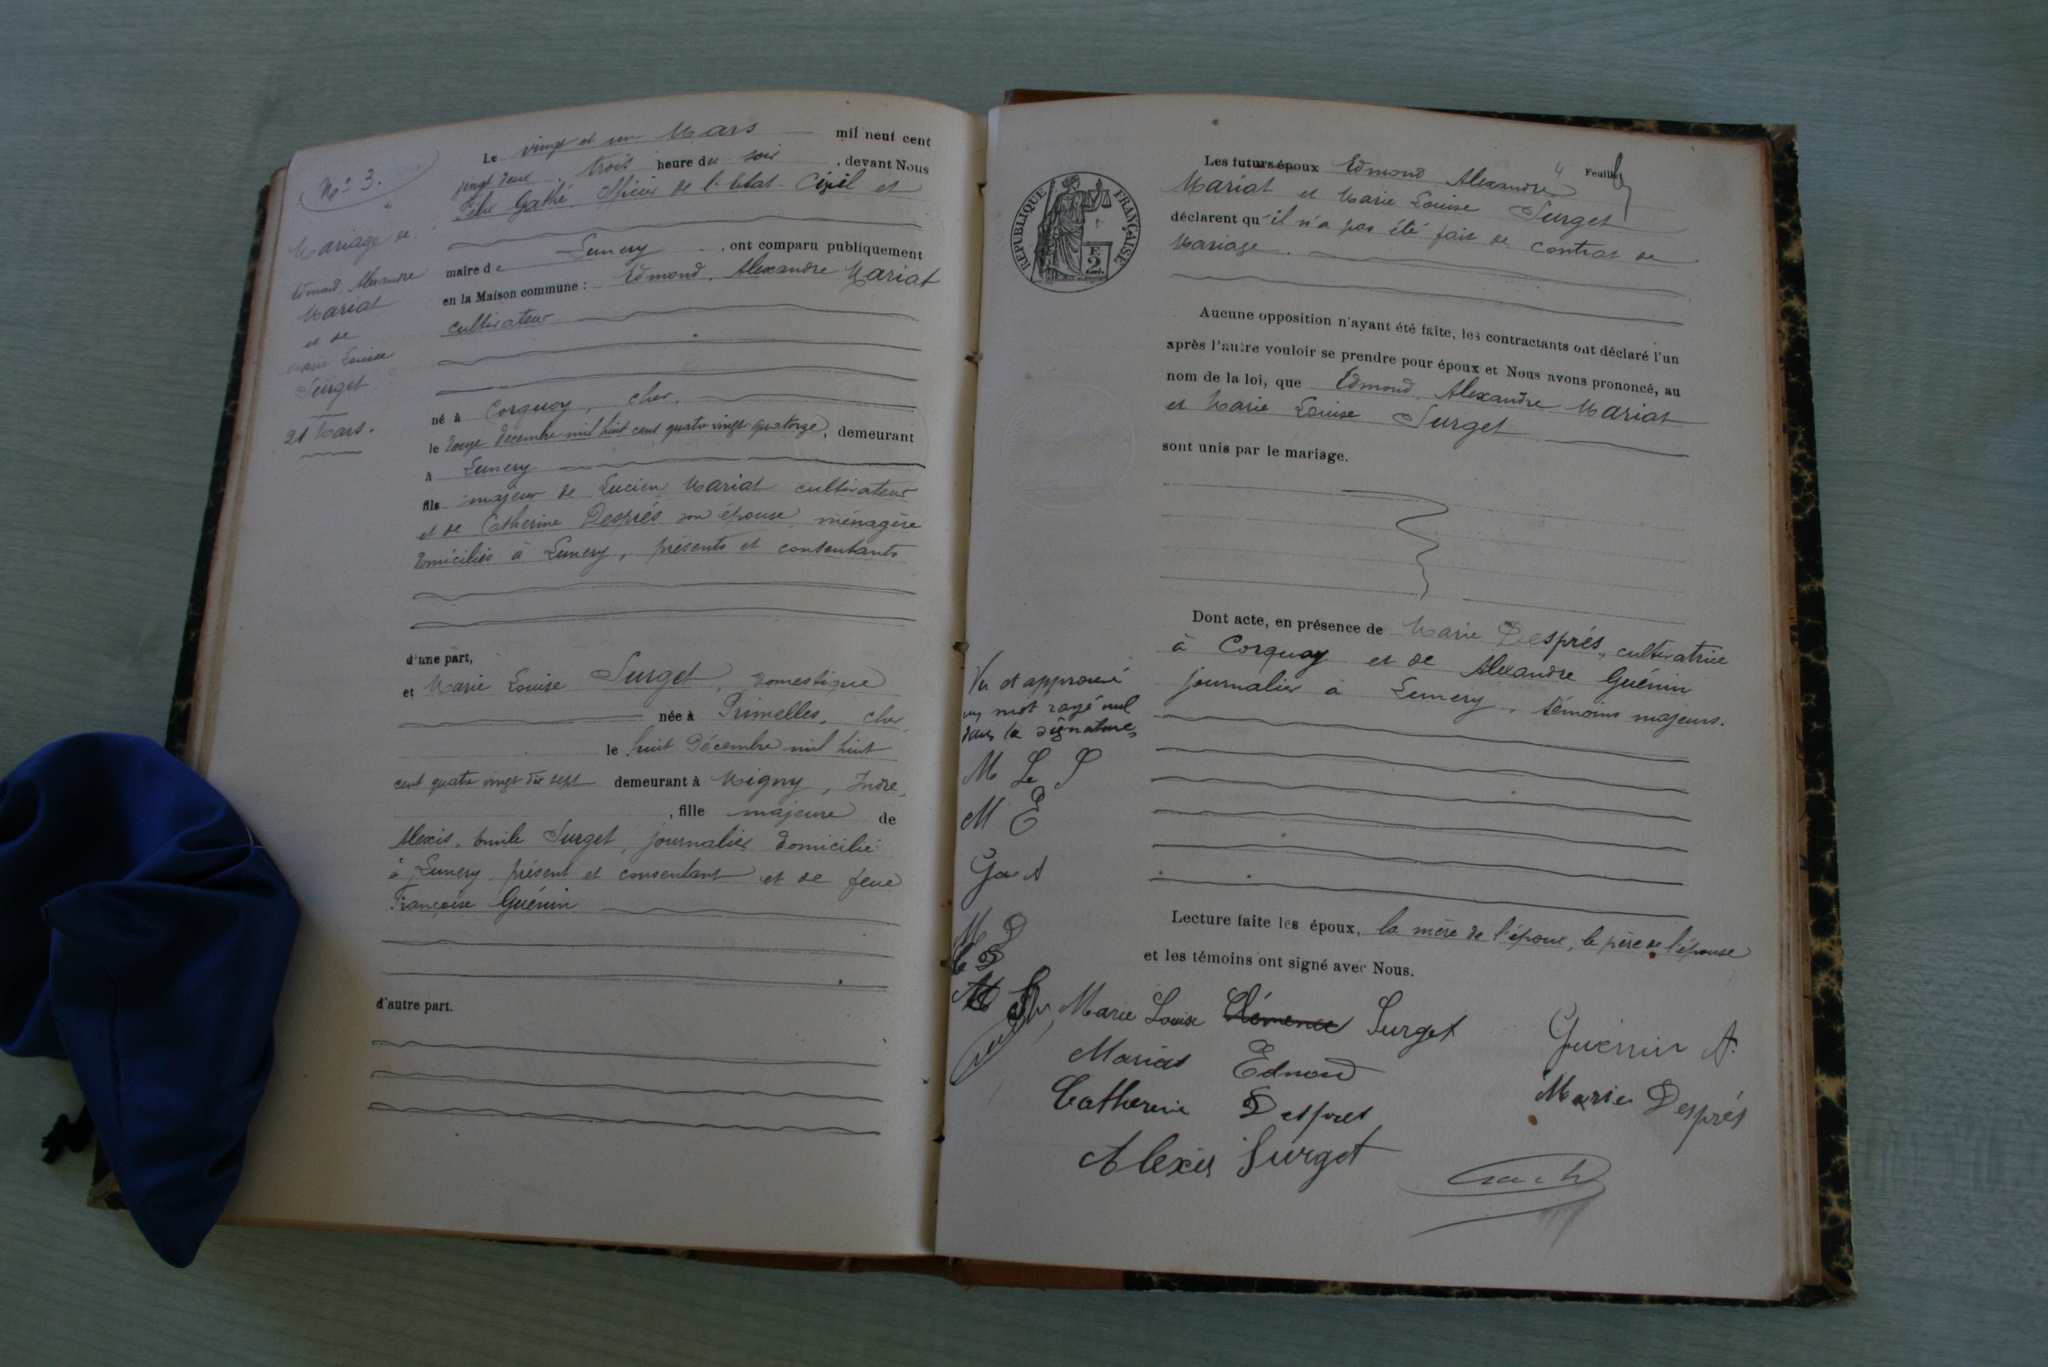 No 3.
Mariage de
Edmond, Alexandre
Mariat
et de
Marie Louise
Surget
21 Mars.
Le vingt et un Mars mil neuf cent
vingt deux, trois heure du soir, devant Nous
Gathé, Officier de l'Etat-Civil et
maire de Lunery, ont comparu publiquement
en la Maison commune : Edmond, Alexandre Mariat
cultivateur
né à Corquoy, Cher,
le douze décembre mil huit cent quatre vingt quatorze, demeurant
à Lunery
fils majeur de Lucien Mariat cultivateur
et de Catherine Després son épouse, ménagère
domiciliés à Lunery, présents et consentants
d'une part,
et Marie Louise Surget, domestique
née à Primelles, Cher,
le huit Décembre mil huit
cent quatre vingt dix sept demeurant à Migny, Indre,
, fille majeure de
Alexis, Emile Surget, journalier domicilié
à Lunery, présent et consentant et de feue
Françoise Guénin
d'autre part.
RÉPUBLIQUE FRANÇAISE
2
Feuillet
Les futurs époux Edmond Alexandre
Mariat et Marie Louise Surget
déclarent qu'il n'a pas été fait de contrat de
Mariage.
Aucune opposition n'ayant été faite, les contractants ont déclaré l'un
après l'autre vouloir se prendre pour époux et Nous avons prononcé, au
nom de la loi, que Edmond, Alexandre Mariat
et Marie Louise Surget
sont unis par le mariage.
Dont acte, en présence de Marie Després, cultivatrice
à Corquoy et de Alexandre Guénin
journalier à Lunery, témoins majeurs.
Vu et approuvé
un mot rayé nul
dans la signature
M L S
M E
G A
M D
C D
Lecture faite les époux, la mère de l'époux, le père de l'épouse
et les témoins ont signé avec Nous.
Marie Louise Clémence Surget
Guenin A.
Mariat Edmond
Marie Després
Catherine Despres
Alexis Surget